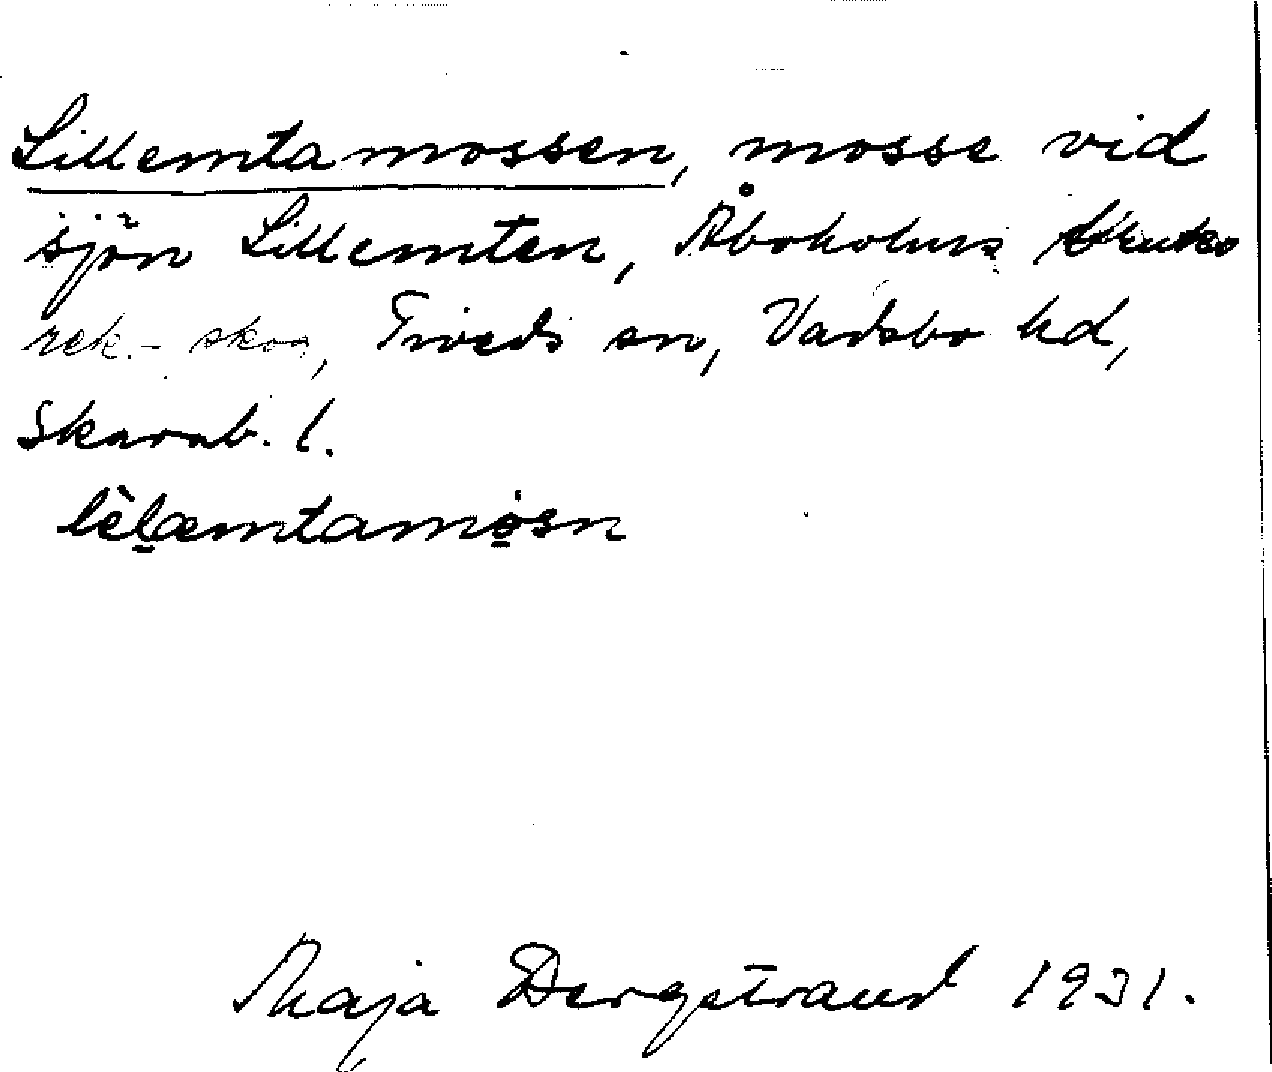 Lillemtamossen, mosse vid
sjön Lillemten, Åboholms
rek.- skog, Tiveds sn, Vadsbo hd,
Skarab. l.
lèlæmtamòsn
Maja Bergstrand 1931.